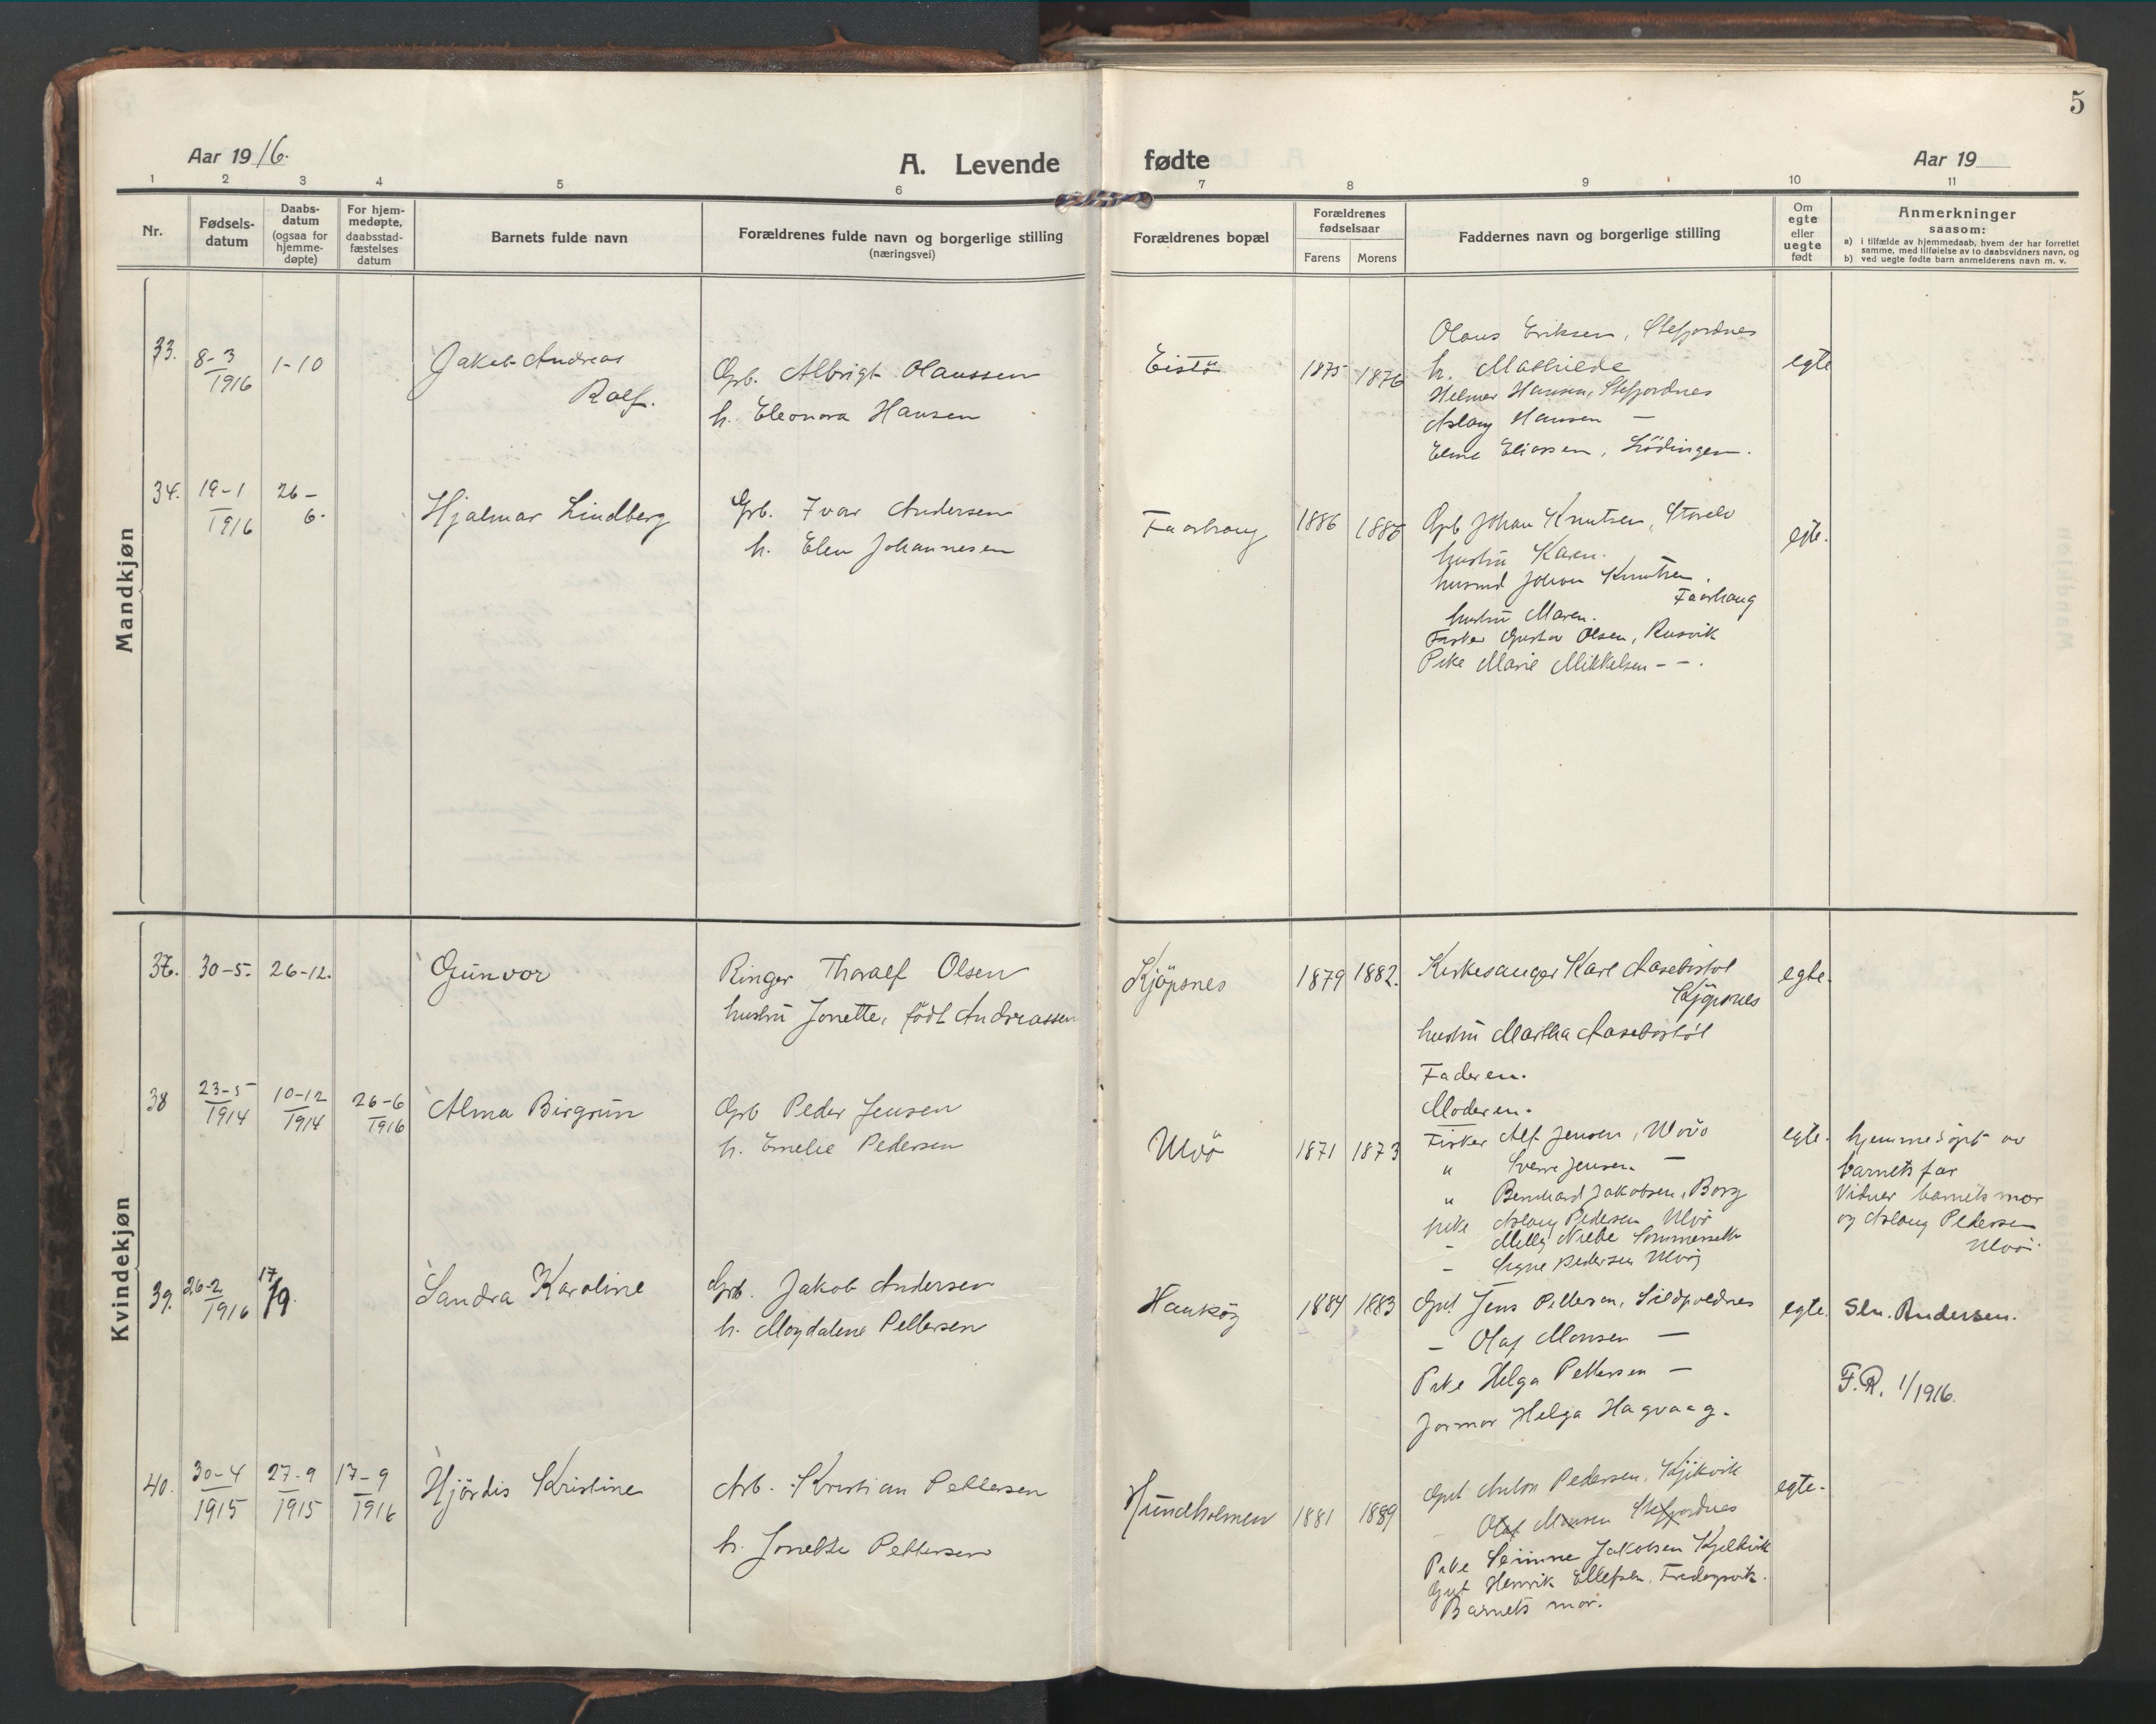 5
Aar 1916.
A. Levende fødte
Aar 19
1 2 3 4 5 6 7 8 9 10 11
Nr.
Fødsels-
datum
Daabs-
datum
(ogsaa for
hjemme-
døpte)
For hjem-
medøpte,
daabsstad-
fæstelses
datum
Barnets fulde navn
Forældrenes fulde navn og borgerlige stilling
(næringsvei)
Forældrenes bopæl
Forældrenes
fødselsaar
Farens Morens
Faddernes navn og borgerlige stilling
Om
egte
eller
uegte
født
Anmerkninger
saasom:
a) i tilfælde av hjemmedaab, hvem der har forrettet
samme, med tilføielse av to daabsvidners navn, og
b) ved uegte fødte barn anmelderens navn m. v.
Mandkjøn
33.
8-3
1916
1-10
Jakob Andreas
Rolf.
Grb. Albrigt Olaussen
h. Eleonora Hansen
Eistö
1875 1876
Olaus Eriksen, Stefjordnes
h. Mathilde
Helmer Hansen, Stefjordnes
Aslaug Hansen —
Eline Eliassen, Lödingen.
egte
34.
19-1
1916
26-
6.
Hjalmar Lindberg
Grb. Ivar Andersen
h. Elen Johannesen
Faarhaug
1886
Grb Johan Knutsen, Storelv
hustru Karen.
husmd Johan Knutsen.
Faarhaug
hustru Maren.
Fisker Gustav Olsen, Rusvik
Pike Marie Mikkelsen - -.
egte.
Kvindekjøn
30-5.
26-12.
Gunvor
Ringer Thoralf Olsen
hustru Jonette, född Andreassen
Kjöpsnes
1879 1882.
Kirkesanger Karl Aasebøstøl
Kjöpsnes
hustru Martha Aasebøstøl
Faderen.
Moderen.
egte.
38
23-5
1914
10-12
1914
26-6
1916
Alma Birgrun
Grb Peder Jensen
h. Emelie Pedersen
Ulvö
1871 1873
Fisker Alf Jensen, Ulvö
" Sverre Jensen —
" Bernhard Jakobsen, Borg
pike Aslaug Pedersen Ulvö
- Milly Nilse Sommerseth
- Signe Pedersen Ulvö
egte.
hjemmedöpt av
barnets far
Vidner barnets mor
og Aslaug Pedersen
Ulvö.
39.
26-2
1916
17/9
Sandra Karoline
Grb. Jakob Andersen
h. Magdalene Pettersen
Haukøy
1884 1883
Gut Jens Pettersen,
- Olaf Monsen —
Pike Helga Pettersen —
Jormor Helga Hagvaag.
egte.
Sln. Andersen.
F.R. 1/1916.
40.
30-4
1915
27-9
1915
17-9
1916
Hjördis Kristine
Arb. Kristian Pettersen
h. Jonette Pettersen
Hundholmen
1881 1889
Gut Anton Pedersen, Kjelkvik
- Olaf Monsen Stefjordnes
Pike Jakobsen Kjelkvik
Gut Henrik Ellefsen,
Barnets mor.
egte.